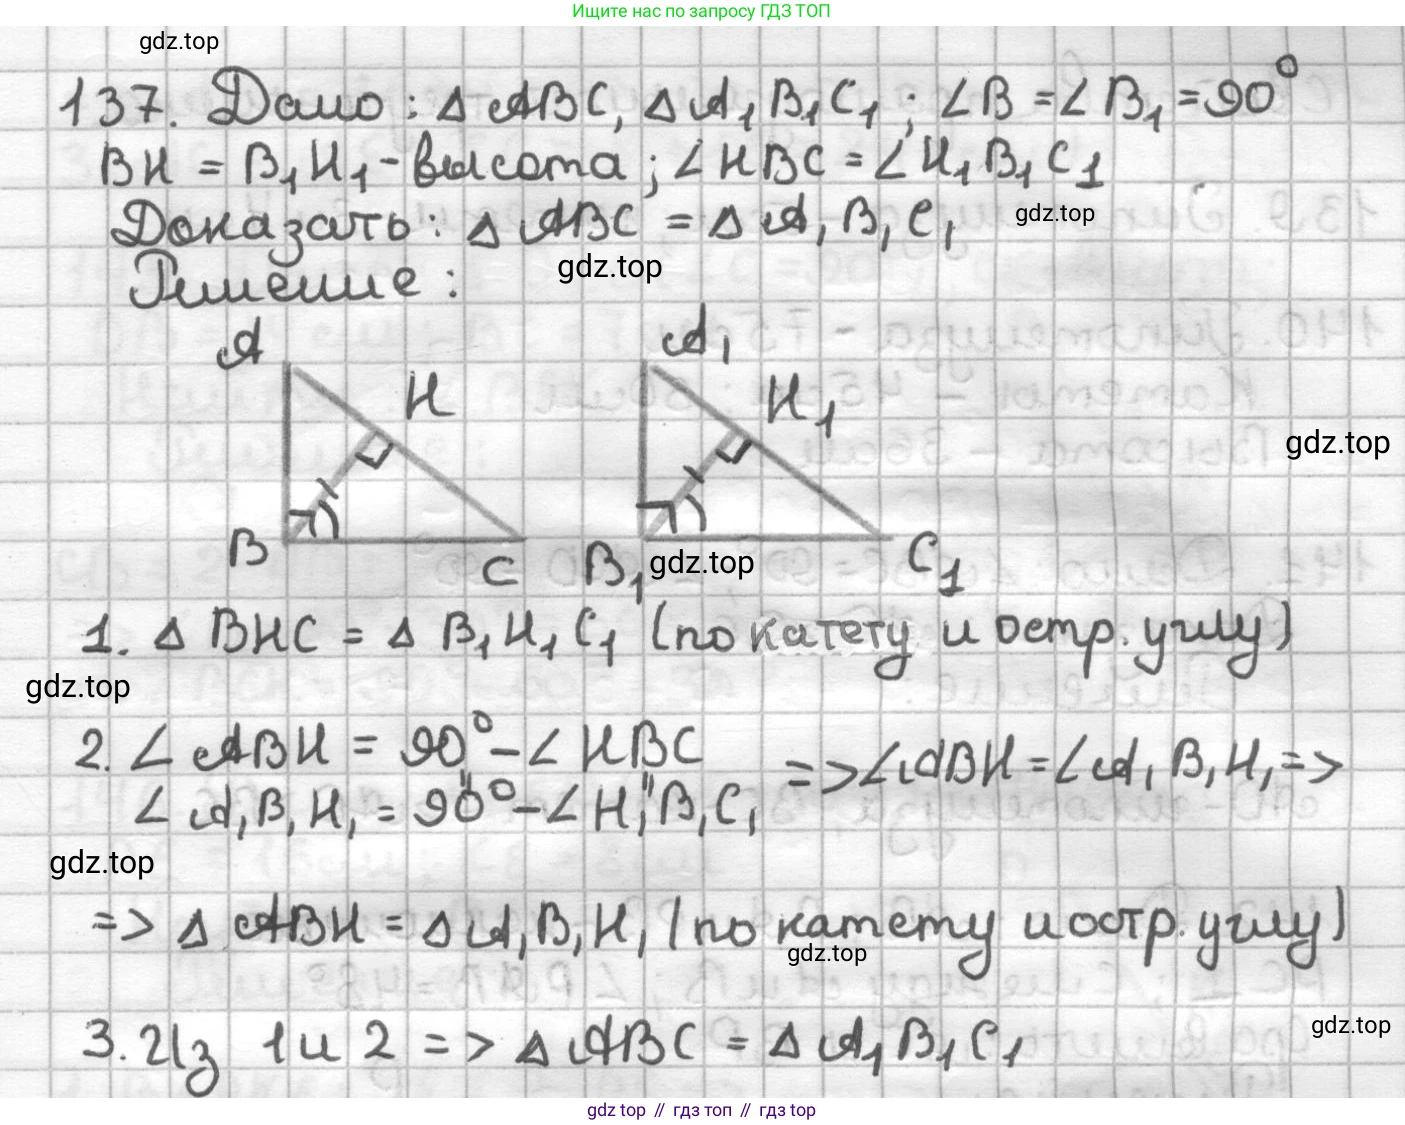 Ищите нас по запросу ГДЗ ТОП
gdz.top
137. Дано: Δ ABC, Δ A₁B₁C₁; ∠B = ∠B₁ = 90°
BH = B₁H₁ - высота; ∠HBC = ∠H₁B₁C₁
Доказать: Δ ABC = Δ A₁B₁C₁
gdz.top
Решение:
gdz.top
A
H
B
C
A₁
H₁
B₁
C₁
gdz.top
gdz.top
1. Δ BHC = Δ B₁H₁C₁ (по катету и остр. углу)
gdz.top
2. ∠ABH = 90° - ∠HBC
∠A₁B₁H₁ = 90° - ∠H₁B₁C₁
=> ∠ABH = ∠A₁B₁H₁ =>
gdz.top
=> Δ ABH = Δ A₁B₁H₁ (по катету и остр. углу)
gdz.top
3. Из 1 и 2 => Δ ABC = Δ A₁B₁C₁
gdz.top
gdz top // гдз топ // гдз top